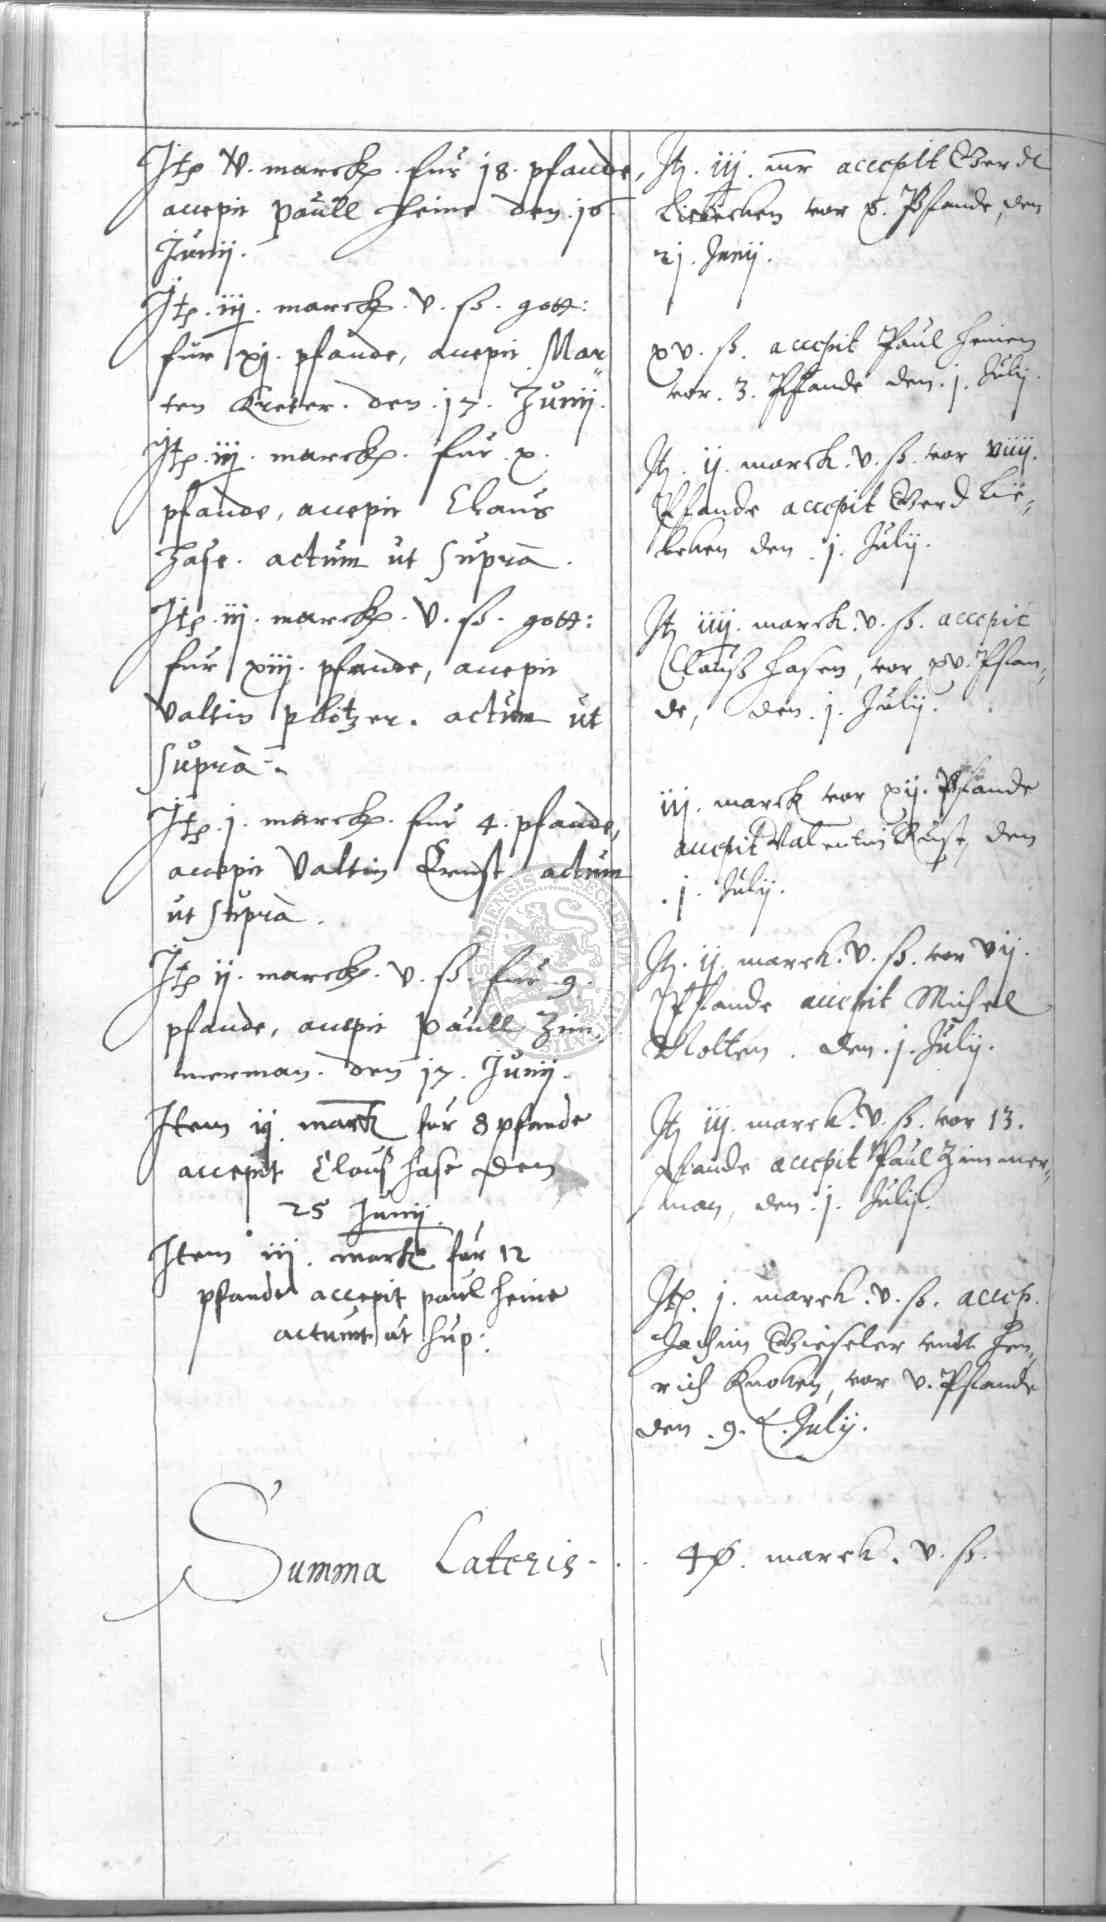 Itp. V. marck. für 18. pfande,
accepit Paull Heine den .16.
Junij.
Itp. iij. marck. v. ß. gott:
für xj. pfande, accepit Mar
ten Kreter. den .17. Junij.
Itp. iij. marck. für x.
pfande, accepit Claus
Hase. actum ut supra.
Itp. iij. marck. v. ß. gott:
für xiij. pfande, accepit
Valtin Plötzer. actum ut
supra.
Itp. j. marck. für 4. pfande,
accepit Valtin Ernst. actum
ut supra.
Itp ij. marck. v. ß. für .9.
pfande, accepit Paull Zim,
merman. den 17. Junij.
Item ij. marck für 8 pfande
accepit Clauß Hase den
25 Junij.
Item iij. marck für 12
pfande accepit paul Heine
actum ut sup:
It. iij. mr accepit Gerdt
vor x. Pfande, den
21. Junij.
xv. ß. accepit Paul Heinen
vor .3. Pfande den .1. Julij.
It. ij. marck. v. ß. vor viiij.
Pfande accepit Gerd Lie,
beken den .1. Julij.
It iiij. marck. v. ß. accepit
Clauß Hasen, vor xv. Pfan,
de, den .1. Julij.
iij. marck vor xij. Pfande
accepit Valentin den
.1. Julij.
It. ij. marck. v. ß. vor vij.
Pfande accepit Michel
Nolten. den .1. Julij.
It iij. marck. v. ß. vor 13.
Pfande accepit Paul Zimmer,
man, den .1. Julij.
Itp. j. marck. v. ß. accep.
Jochim Gieseler undt Hen,
rich Knoken, vor v. Pfande
den .9. Julij.
Summa Lateris . . 40. marck. v. ß.